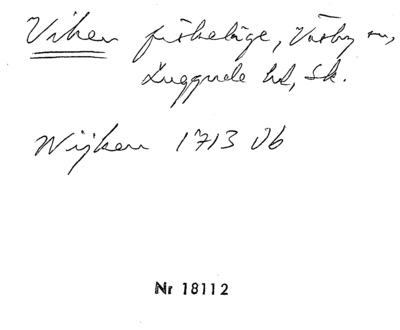 Viken fiskeläge, Väsby sn,
Luggude hd, Sk.
Wijken 1713 Jb
Nr 18112